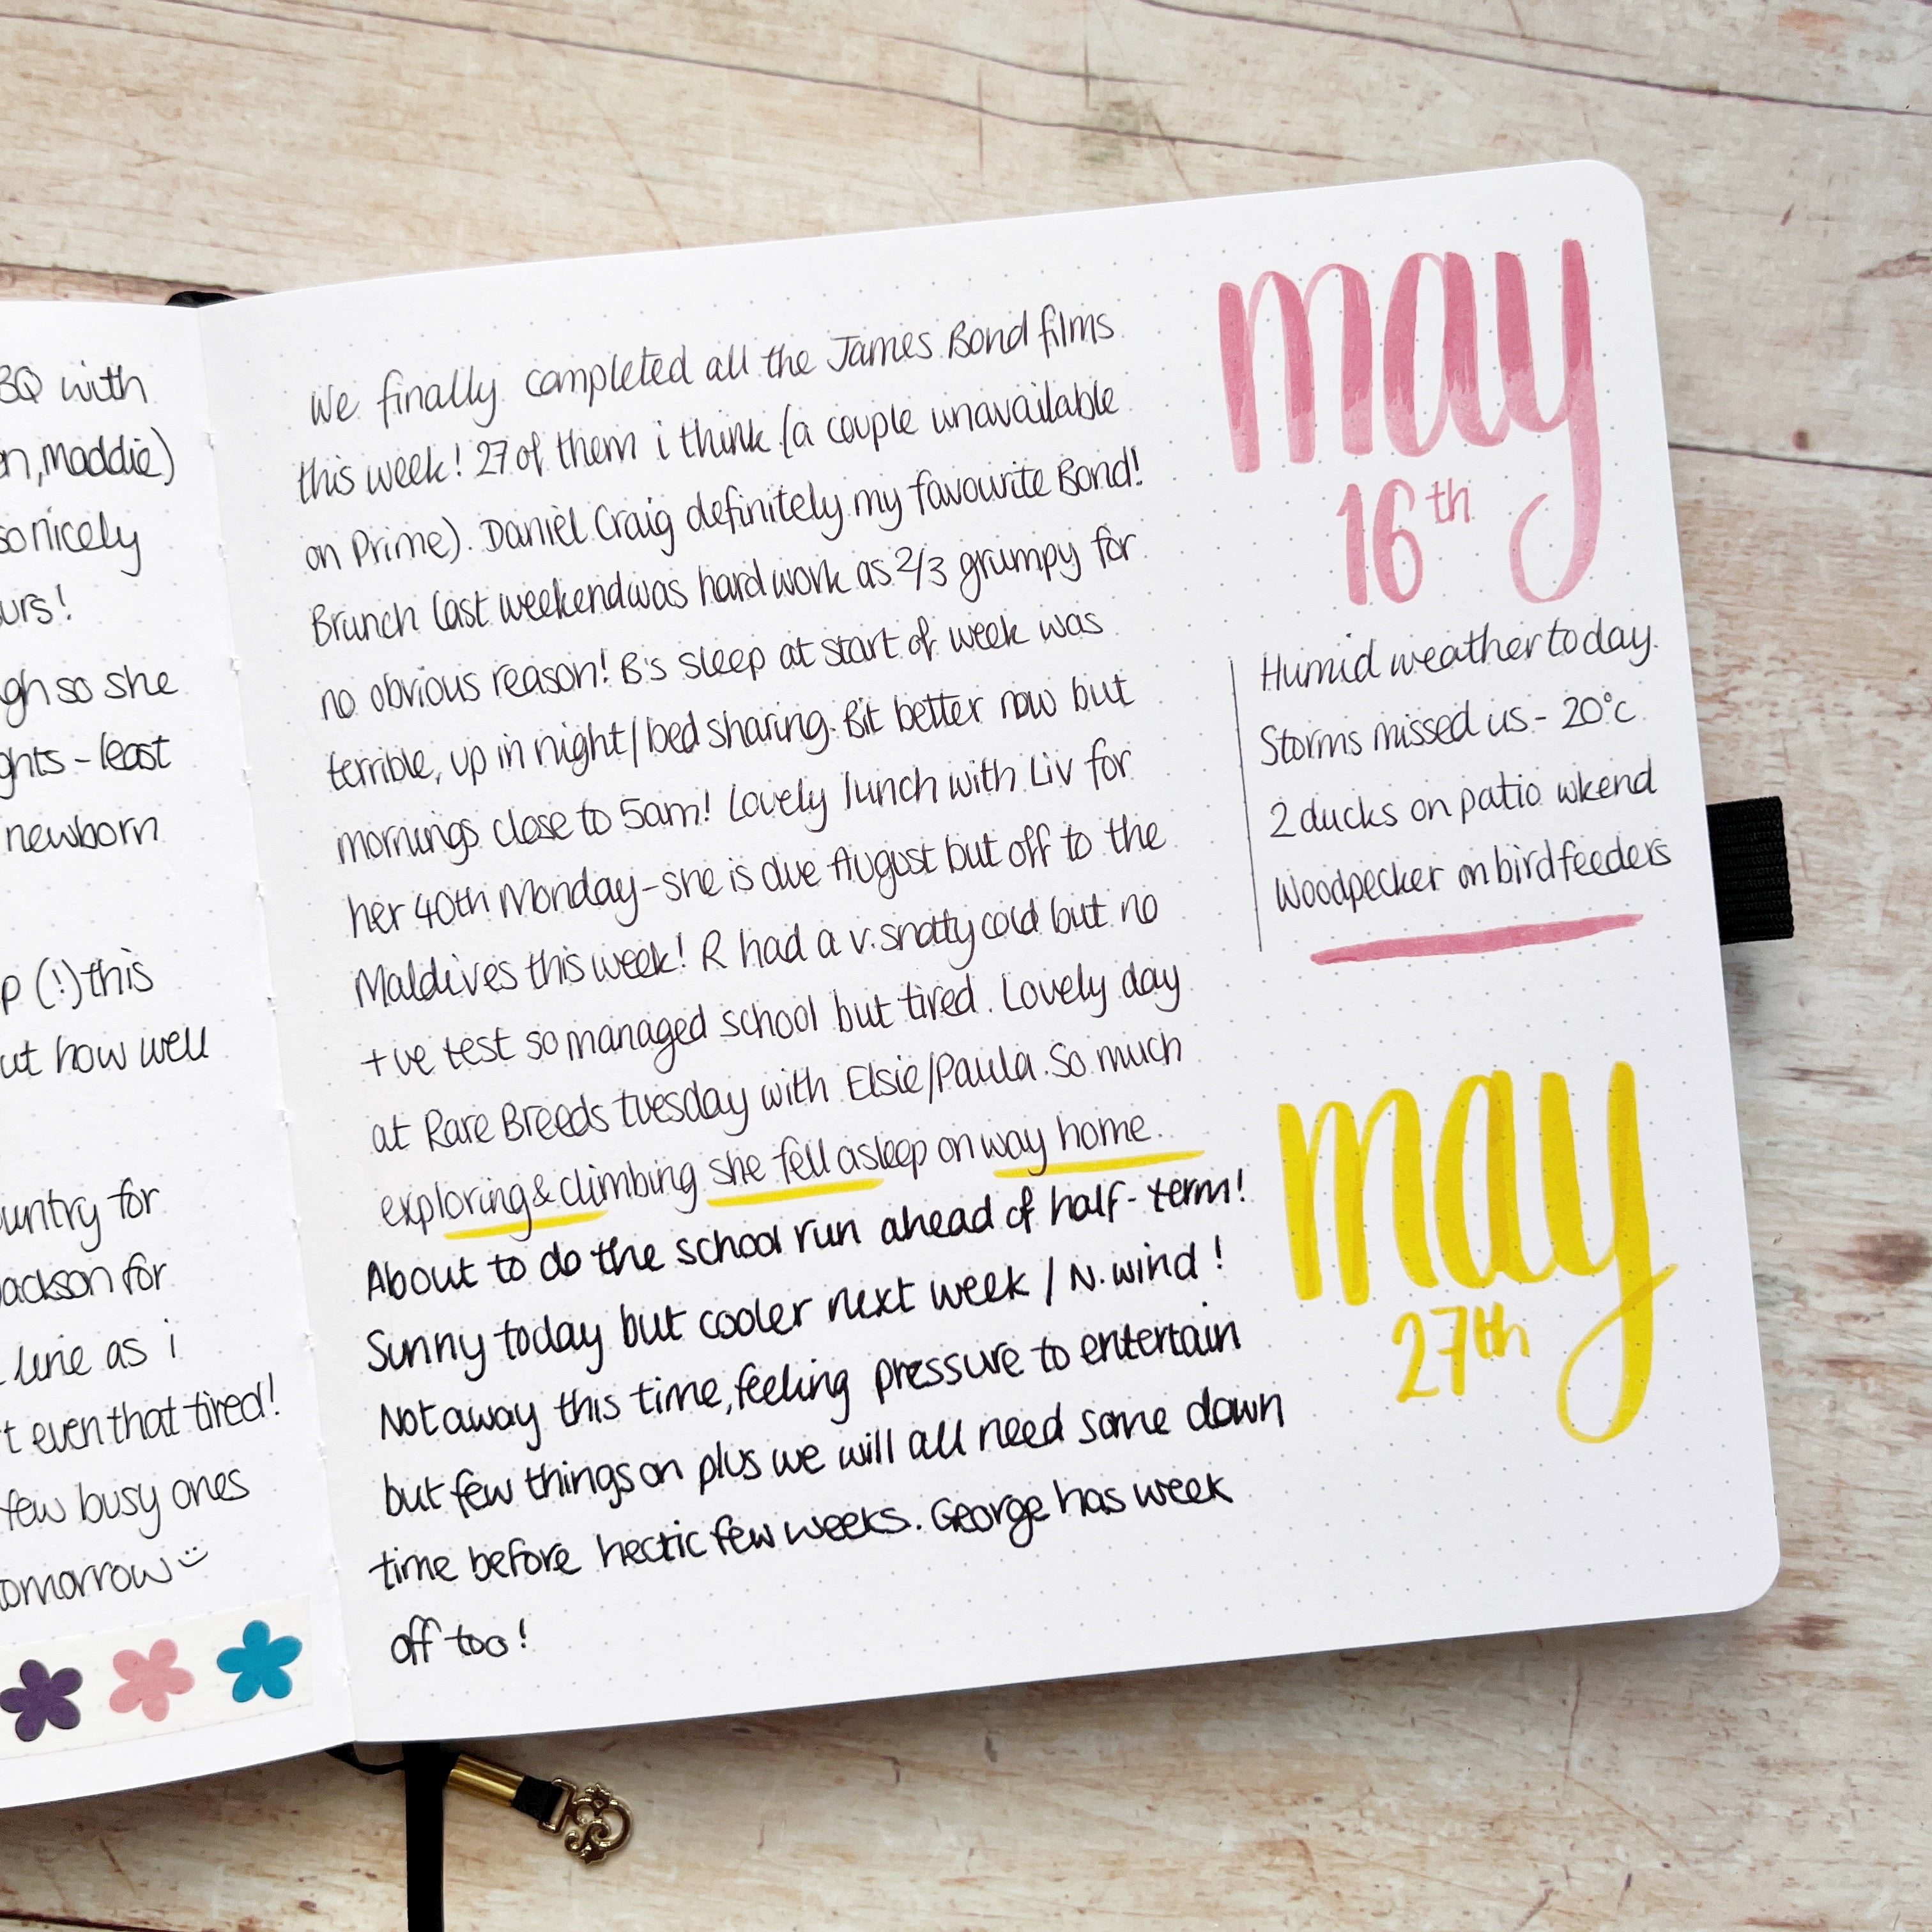 BQ with
maddie)
so nicely
so she
least
newborn
(!) this
how well
for
for
line as i
even that tired!
few busy ones
We finally completed all the James Bond films
this week! 27 of them i think (a couple unavailable
on Prime). Daniel Craig definitely my favourite Bond!
Brunch last weekend was hard work as 2/3 grumpy for
no obvious reason! B's sleep at start of week was
terrible, up in night/bed sharing. Bit better now but
mornings close to 5am! Lovely lunch with Liv for
her 40th Monday - she is due August but off to the
Maldives this week! R had a v. snotty cold but no
+ve test so managed school but tired. Lovely day
at Rare Breeds tuesday with Elsie/Paula. So much
exploring & climbing she fell asleep on way home.
About to do the school run ahead of half-term!
Sunny today but cooler next week / N. wind!
Not away this time, feeling pressure to entertain
but few things on plus we will all need some down
time before hectic few weeks. George has week
off too!
may
16th
Humid weather today.
Storms missed us - 20°c
2 ducks on patio wkend
Woodpecker on bird feeders
may
27th